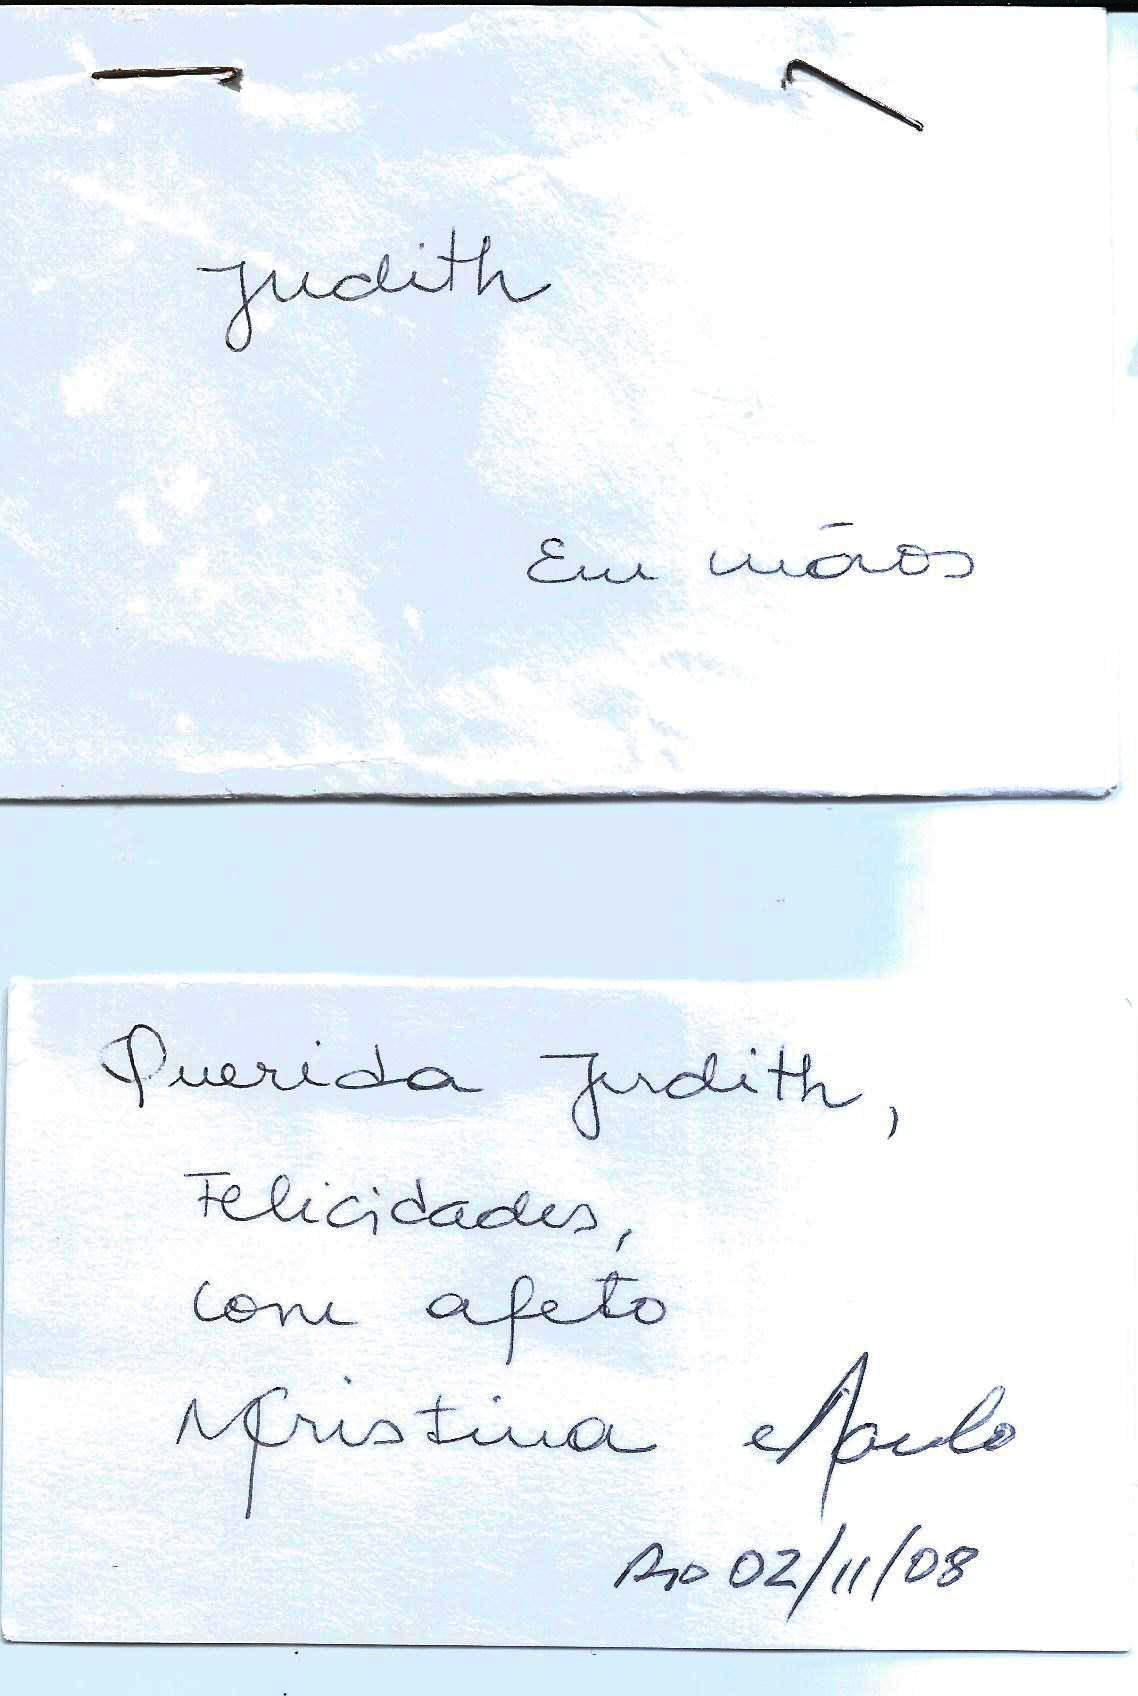 Judith
Em mãos
Querida Judith,
Felicidades,
com afeto
MCristina e Paulo
Rio 02/11/08